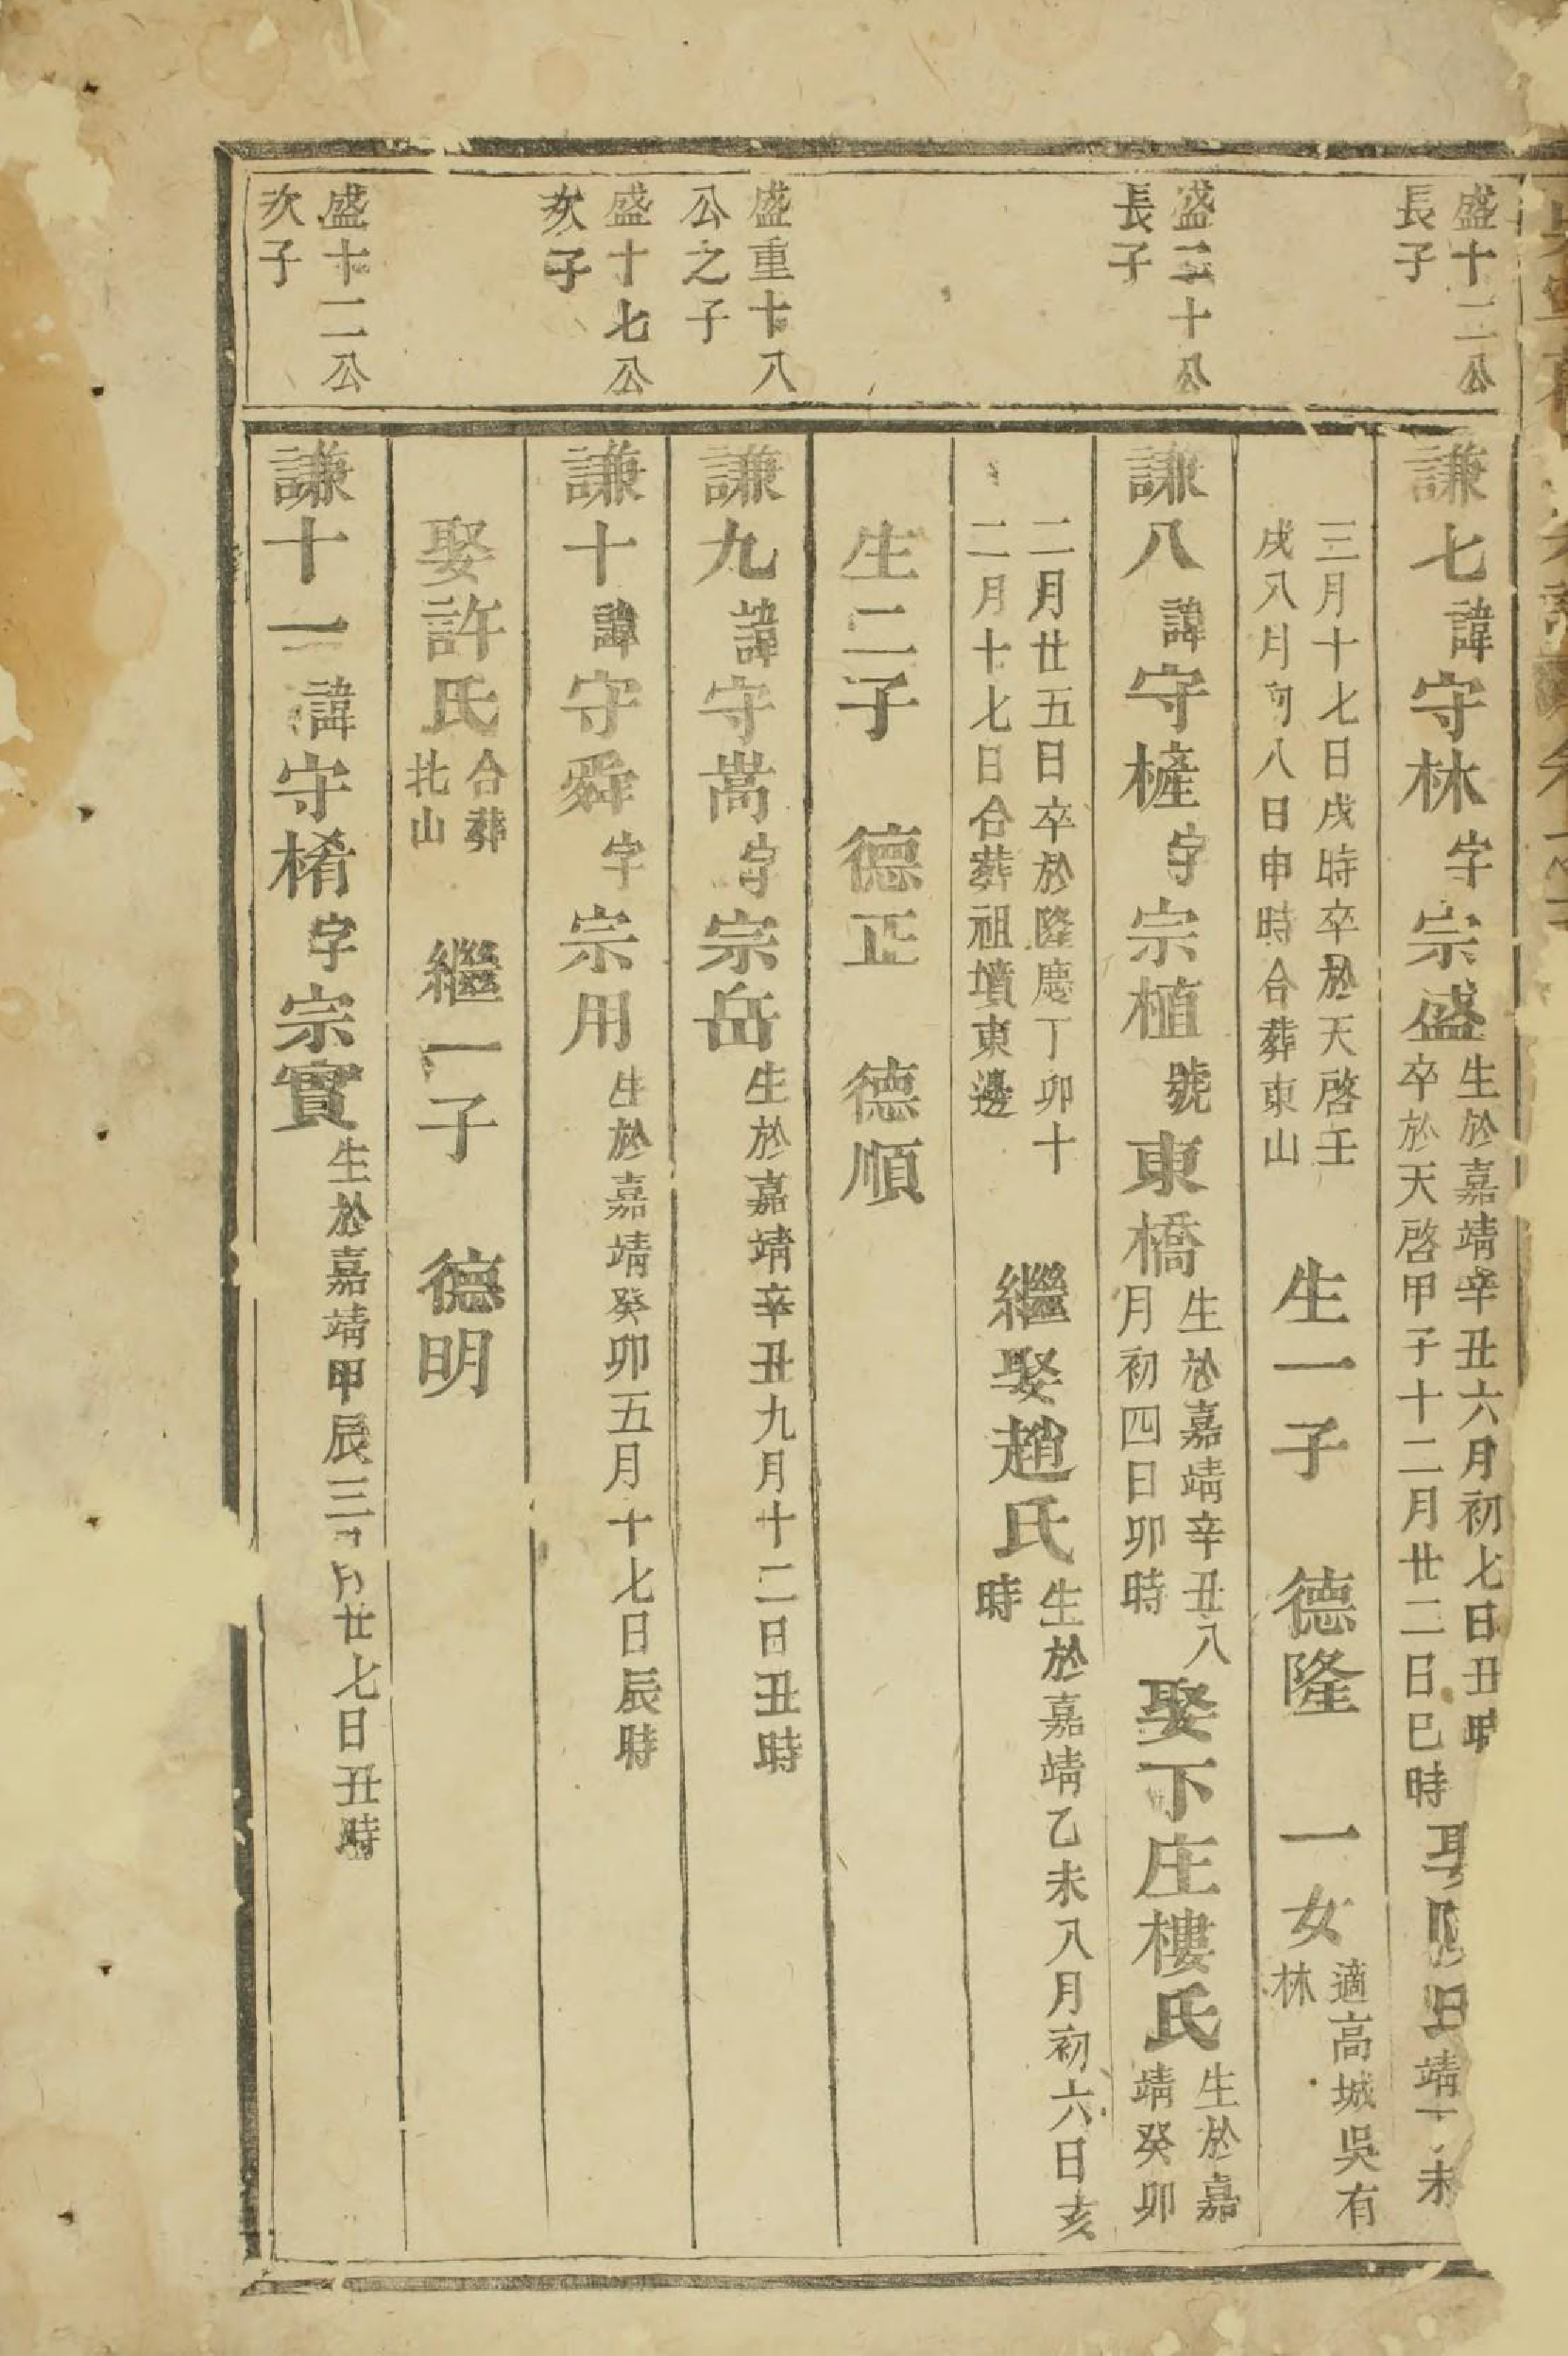 盛十二公
長子
謙七諱守林字宗盛
生於嘉靖辛丑六月初七日丑時
卒於天啓甲子十二月廿二日巳時
靖 未
三月十七日戌時卒於天啓壬
戌八月初八日申時合葬東山
生一子 德隆 一女
適高城吳有
林
盛二十公
長子
謙八諱守樦字宗植號東橋
生於嘉靖辛丑八
月初四日卯時
娶下庄樓氏
生於嘉
靖癸卯
二月廿五日卒於隆慶丁卯十
二月十七日合葬祖墳東邊
繼娶趙氏
生於嘉靖乙未八月初六日亥
時
生二子 德正 德順
盛重十八
公之子
謙九諱守嵩字宗岳
生於嘉靖辛丑九月十二日丑時
盛十七公
次子
謙十諱守舜字宗用
生於嘉靖癸卯五月十七日辰時
娶許氏
合葬
北山
繼一子 德明
盛十二公
次子
謙十一諱守楕字宗實
生於嘉靖甲辰三月廿七日丑時